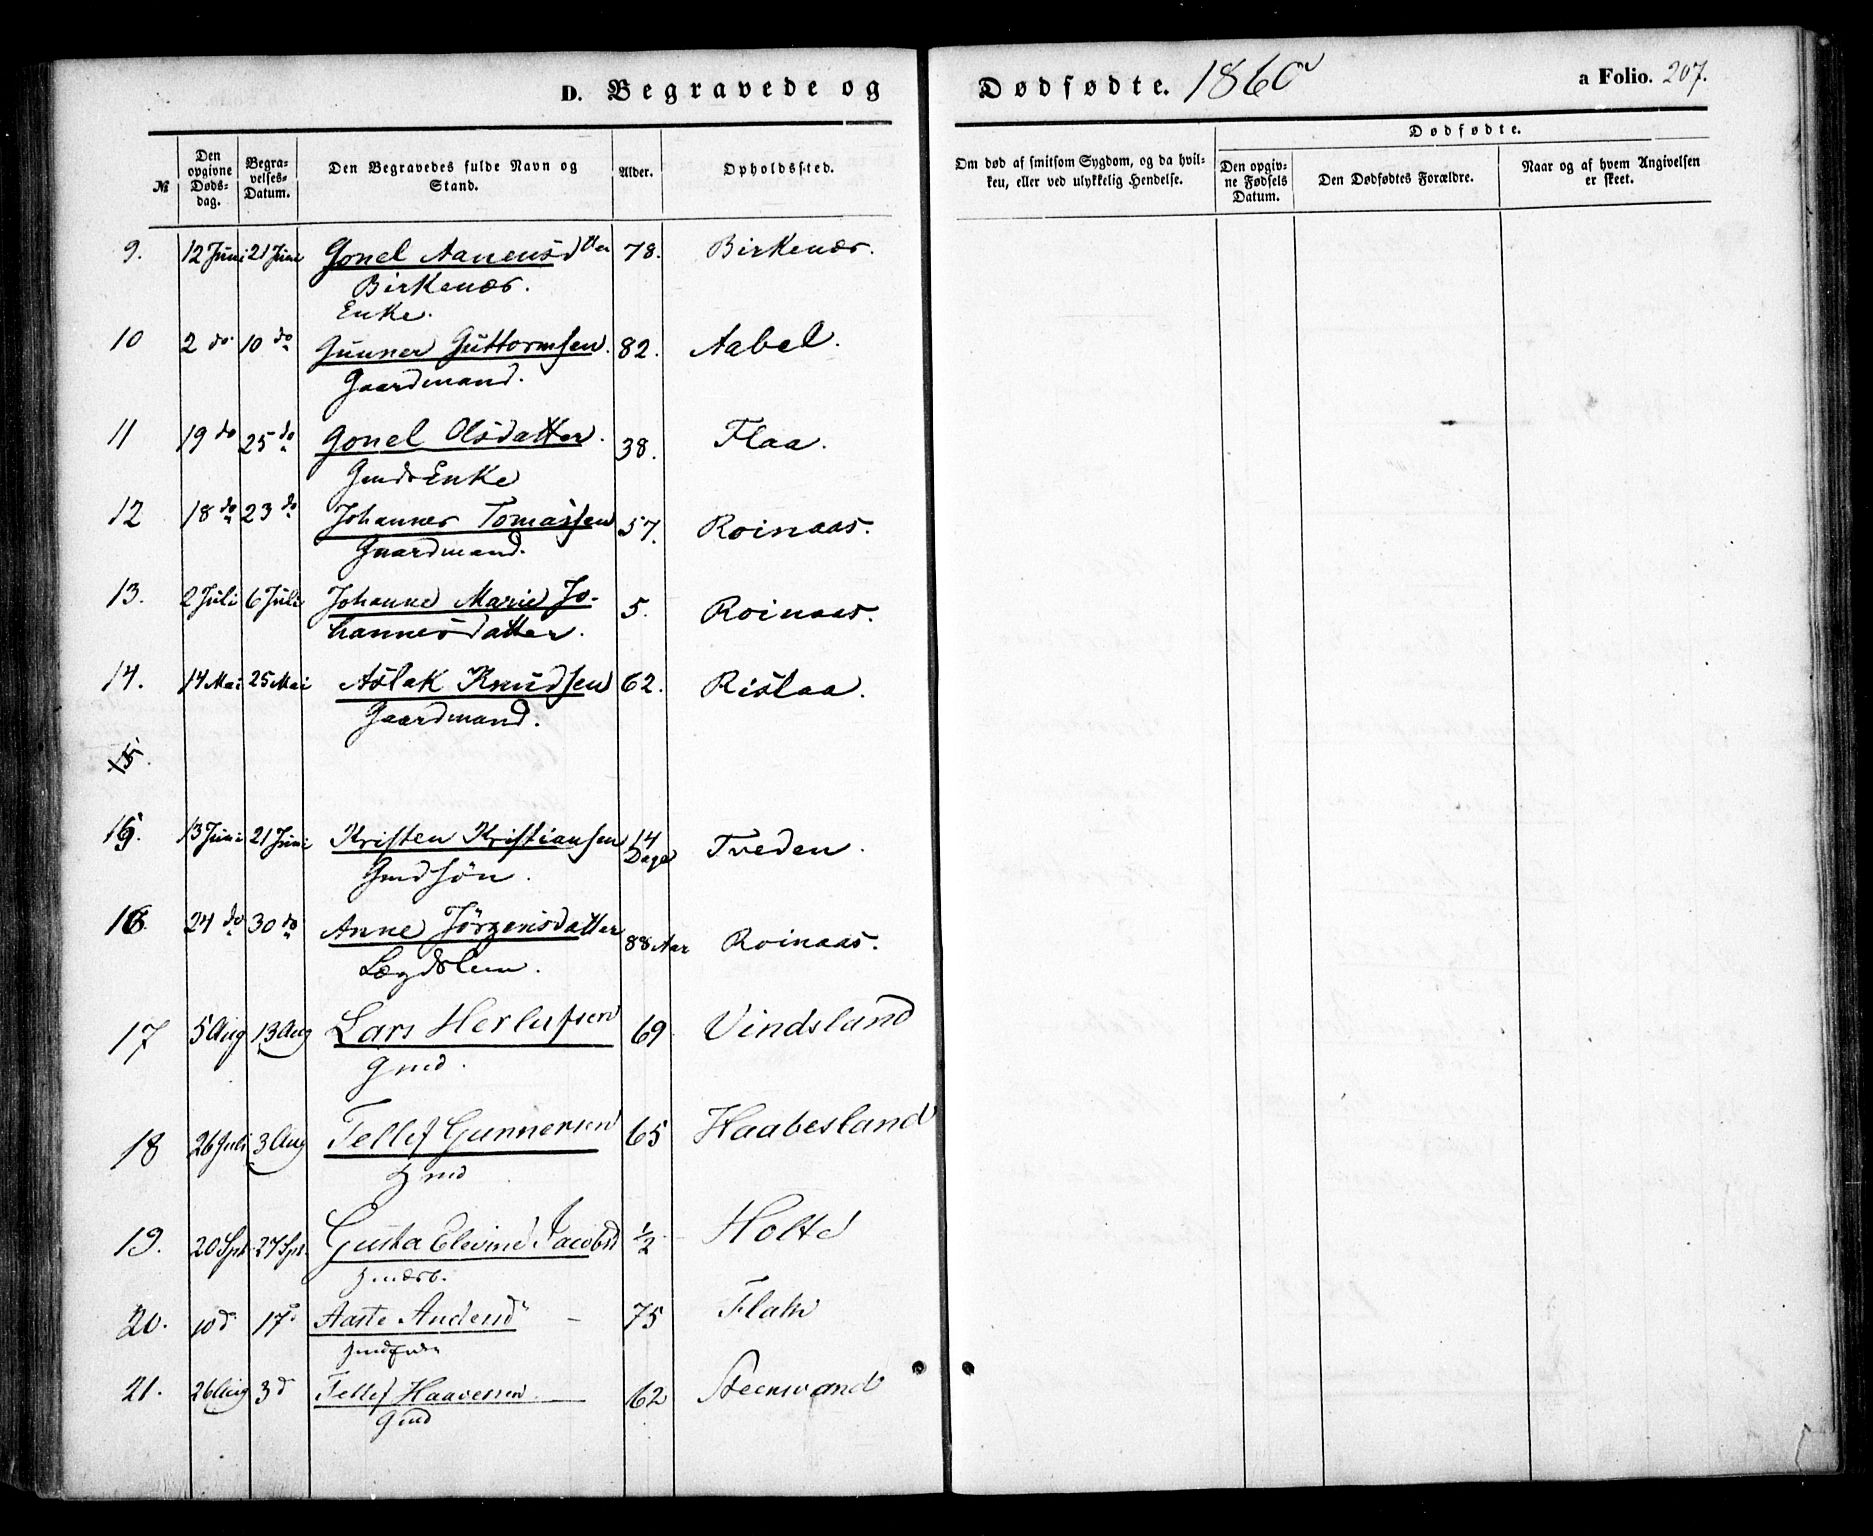 D. Begravede og Dødfødte. 1860 a Folio. 207.
№ Den opgivne Døds-dag. Begra-velses-Datum. Den Begravedes fulde Navn og Stand. Alder. Opholdssted. Om død af smitsom Sygdom, og da hvil-ken, eller ved ulykkelig Hendelse. Dødfødte. Den opgiv-ne Fødsels Datum. Den Dødfødtes Forældre. Naar og af hvem Angivelsen er skeet.
9. 12 Juni 21 Juni Gonel Aanensdtter 78. Birkenæs.
Birkenæs.
Enke.
10 2 do 10 do Gunner Guttormsen. 82. Aabel.
Gaardmand.
11 19 do 25 do Gonel Olsdatter. 38. Flaa.
Gmds Enke
12 18 do 23 do Johannes Tomassen 57. Roinaas.
Gaardmand.
13. 2 Juli 6 Juli Johanne Marie Jo- 5. Roinaas.
hannesdatter.
14. 14 Mai 25 Mai Aslak Knudsen 62. Rislaa.
Gaardmand.
15.
15. 13 Juni 21 Juni Kristen Kristiansen 14 Dage Tveden.
Gmdsøn.
16 24 do 30 do Anne Jörgensdatter 88 Aar Roinaas.
Lægdslem.
17 5 Aug 13 Aug Lars Herlufsen 69 Vindsland
Gmd.
18 26 Juli 3 Aug Tellef Gunnersen 65 Haabesland
Gmd
19. 20 Spt 27 Spt. Gusta Elevine Jacobsd ½ Holte
20. 10 d 17 d Aaste Andersd 75
21. 26 Aug 3 d Tellef Haavessen 62 Steenvand
Gmd